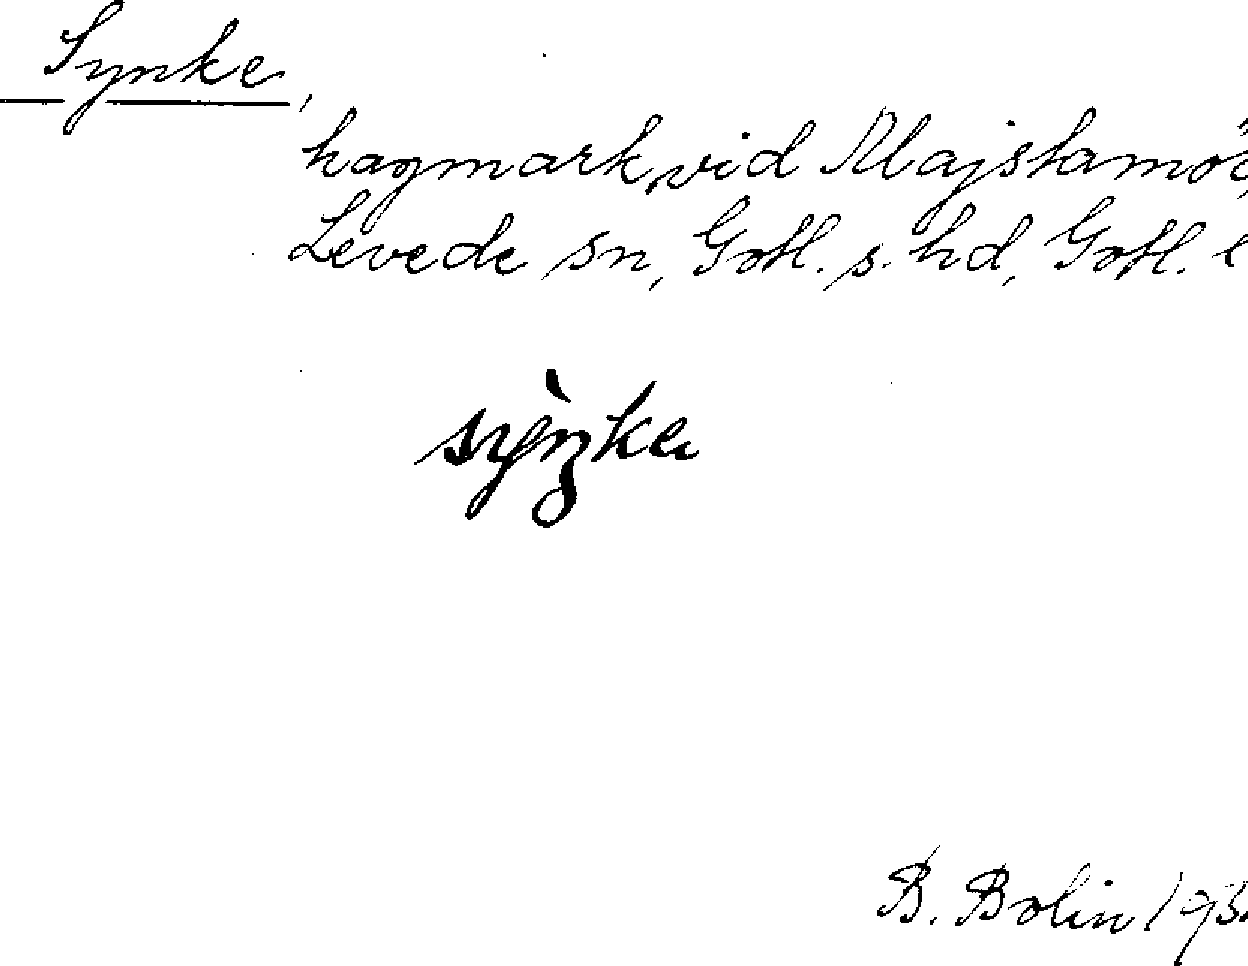 Synke,
hagmark, vid Klajstamöd
Levede sn, Gotl. s. hd, Gotl. l
syŋke
B. Bolin 193